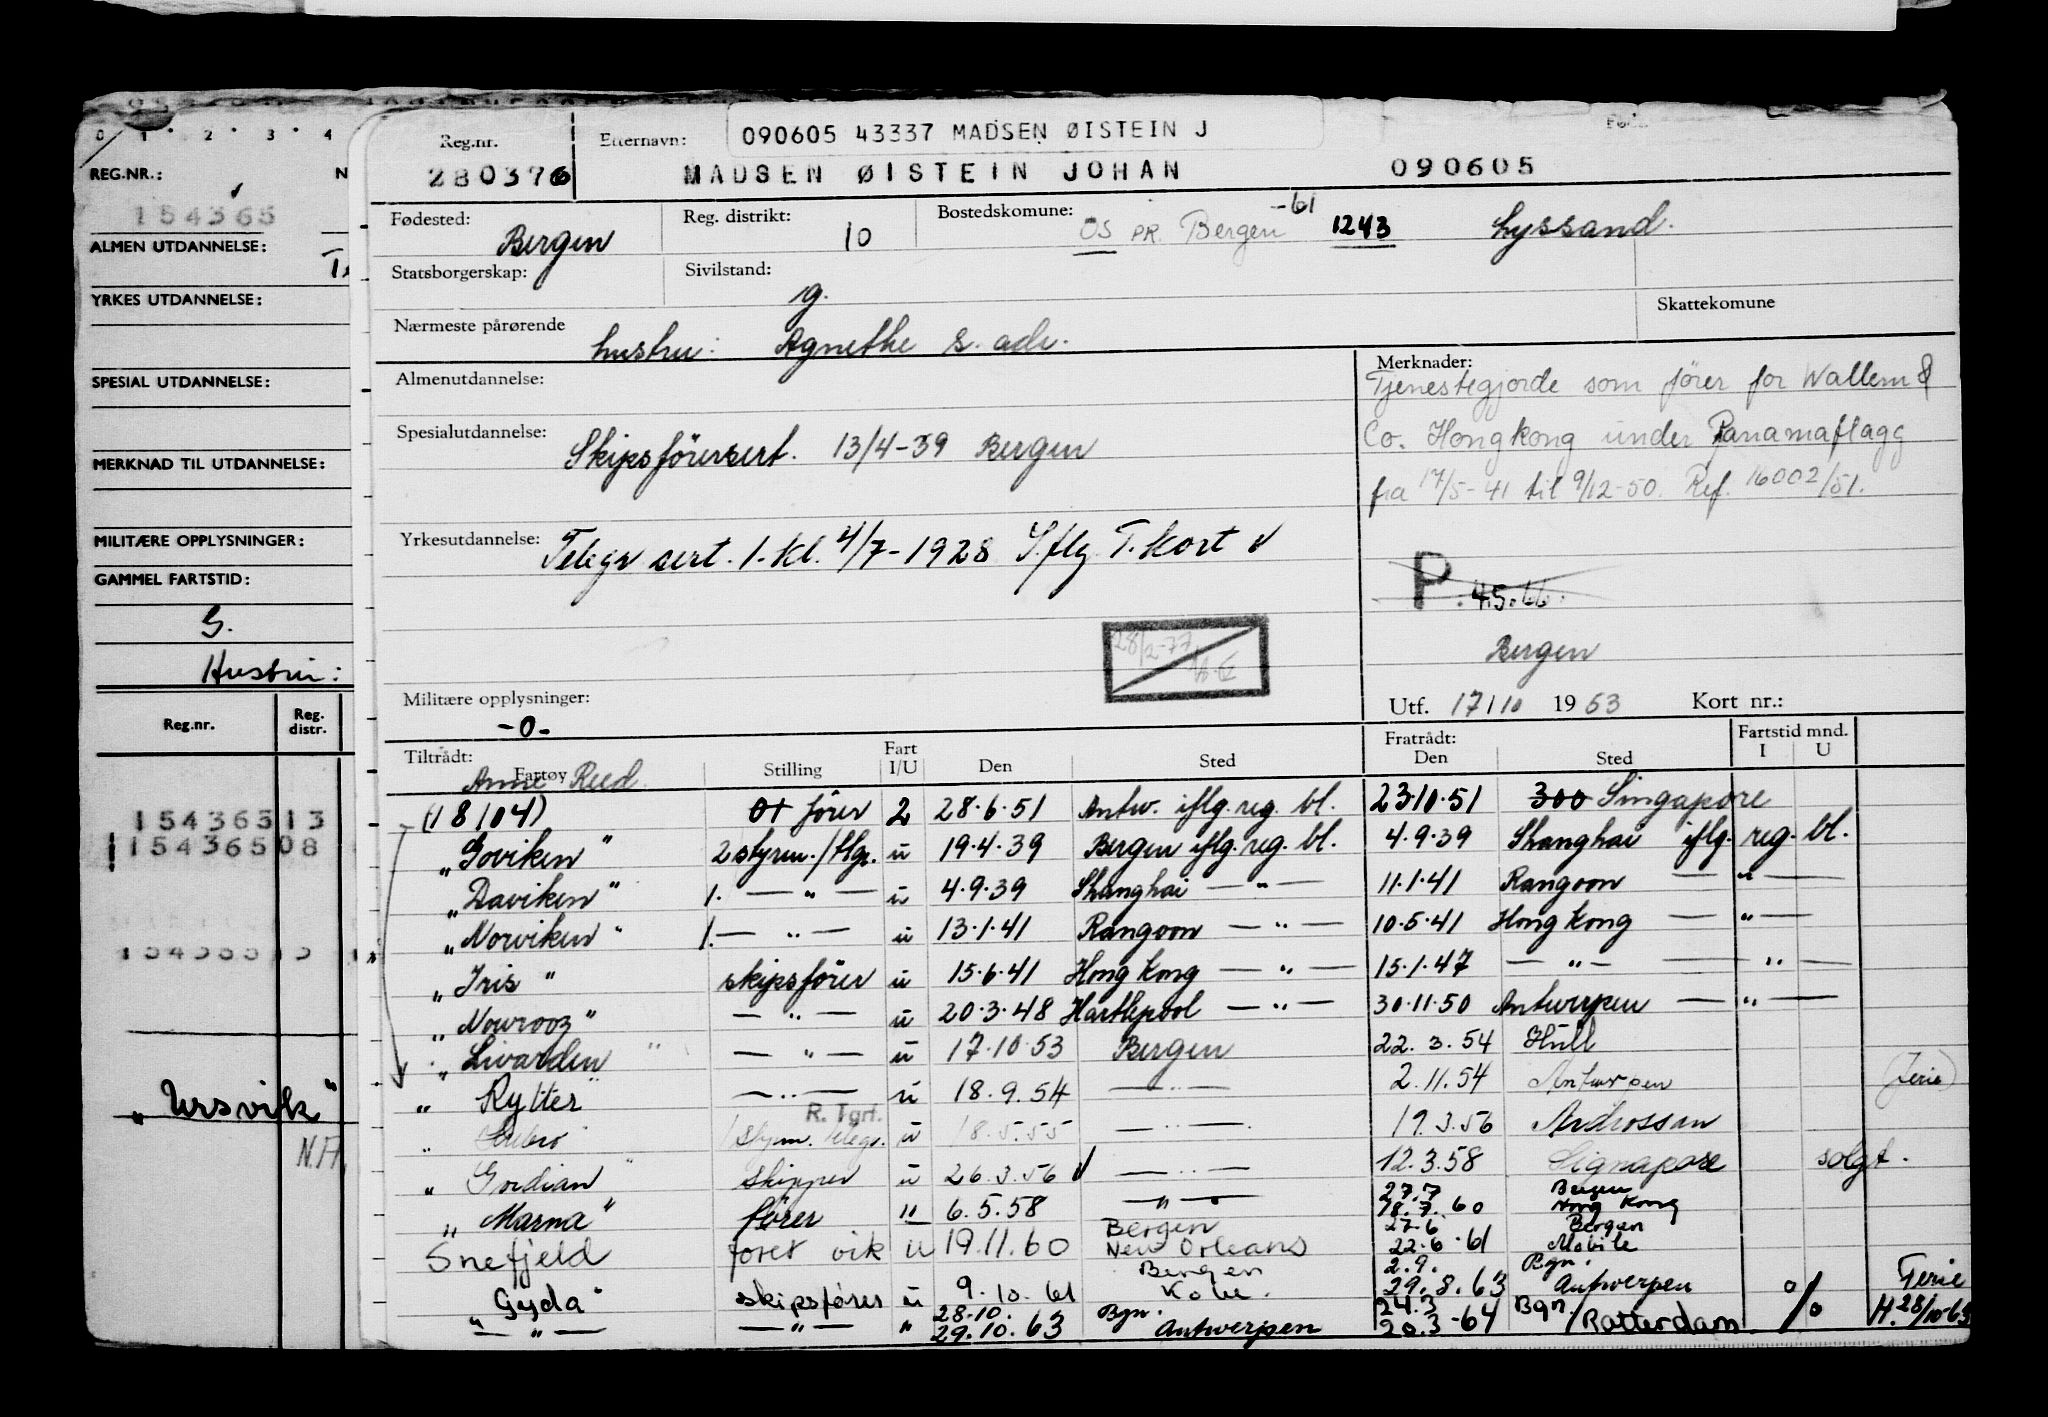 0 1 2 3 4
REG.NR.: N
154365
ALMEN UTDANNELSE:
YRKES UTDANNELSE:
SPESIAL UTDANNELSE:
MERKNAD TIL UTDANNELSE:
MILITÆRE OPPLYSNINGER:
GAMMEL FARTSTID:
G.
Hustru:
Reg.nr. Reg. distr.
15436513
15436508
"Ursvik"
N.A.
Reg.nr. Etternavn: 090605 43337 MADSEN ØISTEIN J
280376 MADSEN ØISTEIN JOHAN 090605
Fødested: Reg. distrikt: Bostedskomune: -61
Bergen 10 OS PR. Bergen 1243 Lyssand.
Statsborgerskap: Sivilstand:
g. Skattekomune
Nærmeste pårørende
hustru: Agnethe s. adr.
Almenutdannelse: Merknader:
Tjenestegjorde som fører for Wallem &
Spesialutdannelse: Skipsförersert. 13/4-39 Bergen
Co. Hongkong under Panamaflagg
fra 17/5-41 til 9/12-50. Ref. 16002/51.
Yrkesutdannelse: Telegr sert. 1. kl. 4/7-1928 I.flg T. kort
P. 4.5.66.
28/2-77
Bergen
Militære opplysninger: Utf. 17/10 1953 Kort nr.:
-0-
Tiltrådt: Fartøy Stilling Fart I/U Den Sted Fratrådt: Den Sted Fartstid mnd. I U
Anne Reed
(18104) fører 2 28.6.51 Antw. iflg. reg. bl. 23.10.51 300 Singapore
"Goviken" 2 styrm./tlgr. u 19.4.39 Bergen iflg. reg. bl. 4.9.39 Shanghai iflg. reg. bl.
"Daviken" 1. — " — u 4.9.39 Shanghai — " — 11.1.41 Rangoon — " —
"Norviken" 1. — " — u 13.1.41 Rangoon — " — 10.5.41 Hong Kong — " —
"Iris" skipsfører u 15.6.41 Hong Kong — " — 15.1.47 — " — — " —
"Nowrooz" — " — u 20.3.48 Harthlpool — " — 30.11.50 Antwerpen — " —
"Livarden" — " — u 17.10.53 Bergen 22.3.54 Hull
"Rytter" — " — u 18.9.54 — " — 2.11.54 Antwerpen (Ferie)
R. Tgrf.
" 1 styrm. telegr. u 18.5.55 — " — 19.3.56 Ardrossan
"Gordian" skipper u 26.3.56 — " — 12.3.58 Signapore solgt.
"Marna" fører " 6.5.58 — " — 27.7 Bergen
18.7.60 Hong Kong
Snefjeld foret vik u 19.11.60 Bergen New Orleans 27.6 Bergen
22.6.61 Mobile
"Gyda" skipsfører u 9.10.61 Bergen Kobe. 2.9. Bgn.
29.8.63 Antwerpen Ferie
— " — — " — " 28.10. Bgn. 24.3 Bgn/
29.10.63 Antwerpen 20.3-64 Rotterdam % H. 28/10-63